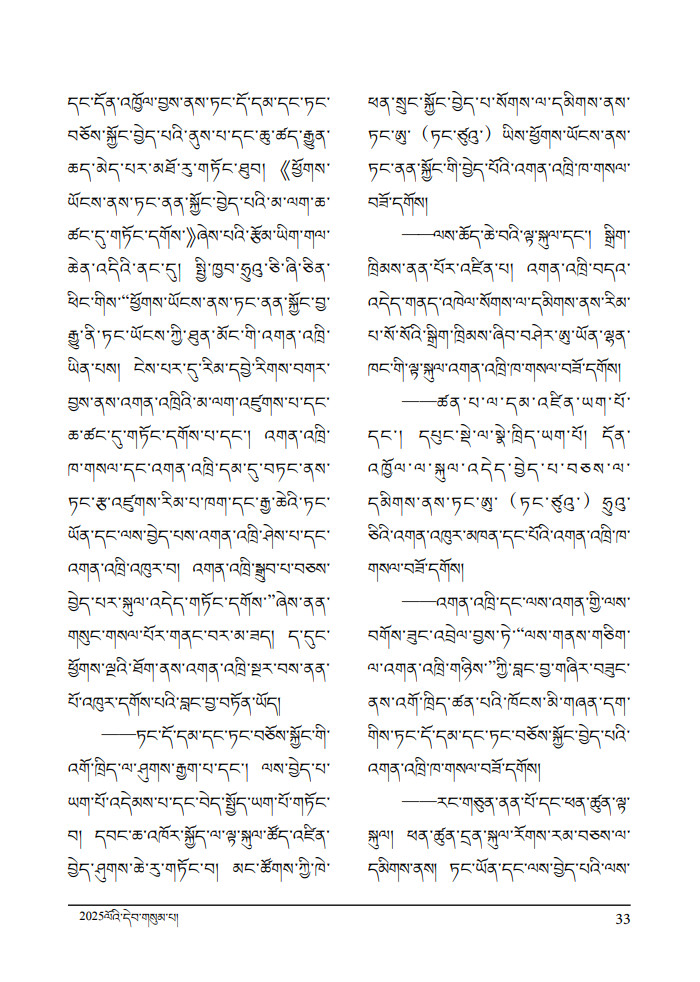 དང་དོན་འཁྱོལ་བྱས་ནས་ཏང་དོ་དམ་དང་ཏང་
བཅོས་སྐྱོང་བྱེད་པའི་ནུས་པ་དང་ཆུ་ཚད་རྒྱུན་
ཆད་མེད་པར་མཐོ་རུ་གཏོང་ཐུབ། 《ཕྱོགས་
ཡོངས་ནས་ཏང་ནན་སྐྱོང་བྱེད་པའི་མ་ལག་ཆ་
ཚང་དུ་གཏོང་དགོས་》ཞེས་པའི་རྩོམ་ཡིག་གལ་
ཆེན་འདིའི་ནང་དུ། སྤྱི་ཁྱབ་ཧྲུའུ་ཅི་ཞི་ཅིན་
ཕིང་གིས་“ཕྱོགས་ཡོངས་ནས་ཏང་ནན་སྐྱོང་བྱ་
རྒྱུ་ནི་ཏང་ཡོངས་ཀྱི་ཐུན་མོང་གི་འགན་འཁྲི་
ཡིན་པས། ངེས་པར་དུ་རིམ་དབྱེ་རིགས་བགར་
བྱས་ནས་འགན་འཁྲིའི་མ་ལག་འཛུགས་པ་དང་
ཆ་ཚང་དུ་གཏོང་དགོས་པ་དང་། འགན་འཁྲི་
ཁ་གསལ་དང་འགན་འཁྲི་དམ་དུ་བཏང་ནས་
ཏང་རྩ་འཛུགས་རིམ་པ་ཁག་དང་རྒྱ་ཆེའི་ཏང་
ཡོན་དང་ལས་བྱེད་པས་འགན་འཁྲི་ཤེས་པ་དང་
འགན་འཁྲི་འཁུར་བ། འགན་འཁྲི་སྒྲུབ་པ་བཅས་
བྱེད་པར་སྐུལ་འདེད་གཏོང་དགོས་”ཞེས་ནན་
གསུང་གསལ་པོར་གནང་བར་མ་ཟད། ད་དུང་
ཕྱོགས་ལྔའི་ཐོག་ནས་འགན་འཁྲི་སྔར་བས་ནན་
པོ་འཁུར་དགོས་པའི་བླང་བྱ་བཏོན་ཡོད།
——ཏང་དོ་དམ་དང་ཏང་བཅོས་སྐྱོང་གི་
འགོ་ཁྲིད་ལ་ཤུགས་རྒྱག་པ་དང་། ལས་བྱེད་པ་
ཡག་པོ་འདེམས་པ་དང་བེད་སྤྱོད་ཡག་པོ་གཏོང་
བ། དབང་ཆ་འཁོར་སྐྱོད་ལ་ལྟ་སྐུལ་ཚོད་འཛིན་
བྱེད་ཤུགས་ཆེ་རུ་གཏོང་བ། མང་ཚོགས་ཀྱི་ཁེ་
ཕན་སྲུང་སྐྱོང་བྱེད་པ་སོགས་ལ་དམིགས་ནས་
ཏང་ཨུ་（ཏང་ཙུའུ་）ཡིས་ཕྱོགས་ཡོངས་ནས་
ཏང་ནན་སྐྱོང་གི་བྱེད་པོའི་འགན་འཁྲི་ཁ་གསལ་
བཟོ་དགོས།
——ལས་ཚོད་ཆེ་བའི་ལྟ་སྐུལ་དང་། སྒྲིག་
ཁྲིམས་ནན་པོར་འཛིན་པ། འགན་འཁྲི་བདའ་
འདེད་གནད་འཁེལ་སོགས་ལ་དམིགས་ནས་རིམ་
པ་སོ་སོའི་སྒྲིག་ཁྲིམས་ཞིབ་བཤེར་ཨུ་ཡོན་ལྷན་
ཁང་གི་ལྟ་སྐུལ་འགན་འཁྲི་ཁ་གསལ་བཟོ་དགོས།
——ཚན་པ་ལ་དམ་འཛིན་ཡག་པོ་
དང་། དཔུང་སྡེ་ལ་སྣེ་ཁྲིད་ཡག་པོ། དོན་
འཁྱོལ་ལ་སྐུལ་འདེད་བྱེད་པ་བཅས་ལ་
དམིགས་ནས་ཏང་ཨུ་（ཏང་ཙུའུ་）ཧྲུའུ་
ཅིའི་འགན་འཁུར་མཁན་དང་པོའི་འགན་འཁྲི་ཁ་
གསལ་བཟོ་དགོས།
——འགན་འཁྲི་དང་ལས་འགན་གྱི་ལས་
བགོས་ཟུང་འབྲེལ་བྱས་ཏེ་“ལས་གནས་གཅིག་
ལ་འགན་འཁྲི་གཉིས་”ཀྱི་བླང་བྱ་གཞིར་བཟུང་
ནས་འགོ་ཁྲིད་ཚན་པའི་ཁོངས་མི་གཞན་དག་
གིས་ཏང་དོ་དམ་དང་ཏང་བཅོས་སྐྱོང་བྱེད་པའི་
འགན་འཁྲི་ཁ་གསལ་བཟོ་དགོས།
——རང་གཅུན་ནན་པོ་དང་ཕན་ཚུན་ལྟ་
སྐུལ། ཕན་ཚུན་དྲན་སྐུལ་རོགས་རམ་བཅས་ལ་
དམིགས་ནས། ཏང་ཡོན་དང་ལས་བྱེད་པའི་ལས་
2025ལོའི་དེབ་གསུམ་པ།
33